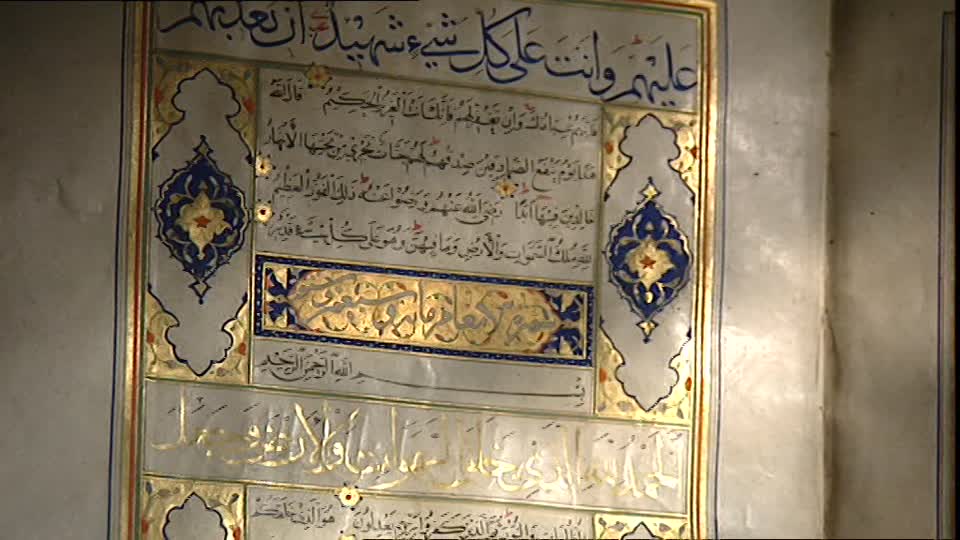 عليهم وانت على كل شيء شهيد ان تعذبهم
فانهم عبادك وان تغفر لهم فانك انت العزيز الحكيم قال الله
هذا يوم ينفع الصادقين صدقهم لهم جنات تجري من تحتها الأنهار
خالدين فيها ابدا رضي الله عنهم ورضوا عنه ذلك الفوز العظيم
لله ملك السموات والأرض وما فيهن وهو على كل شيء قدير
سورة الانعام
بسم الله الرحمن الرحيم
الحمد لله الذي خلق السموات والأرض وجعل
الظلمات والنور ثم الذين كفروا بربهم يعدلون هو الذي خلقكم